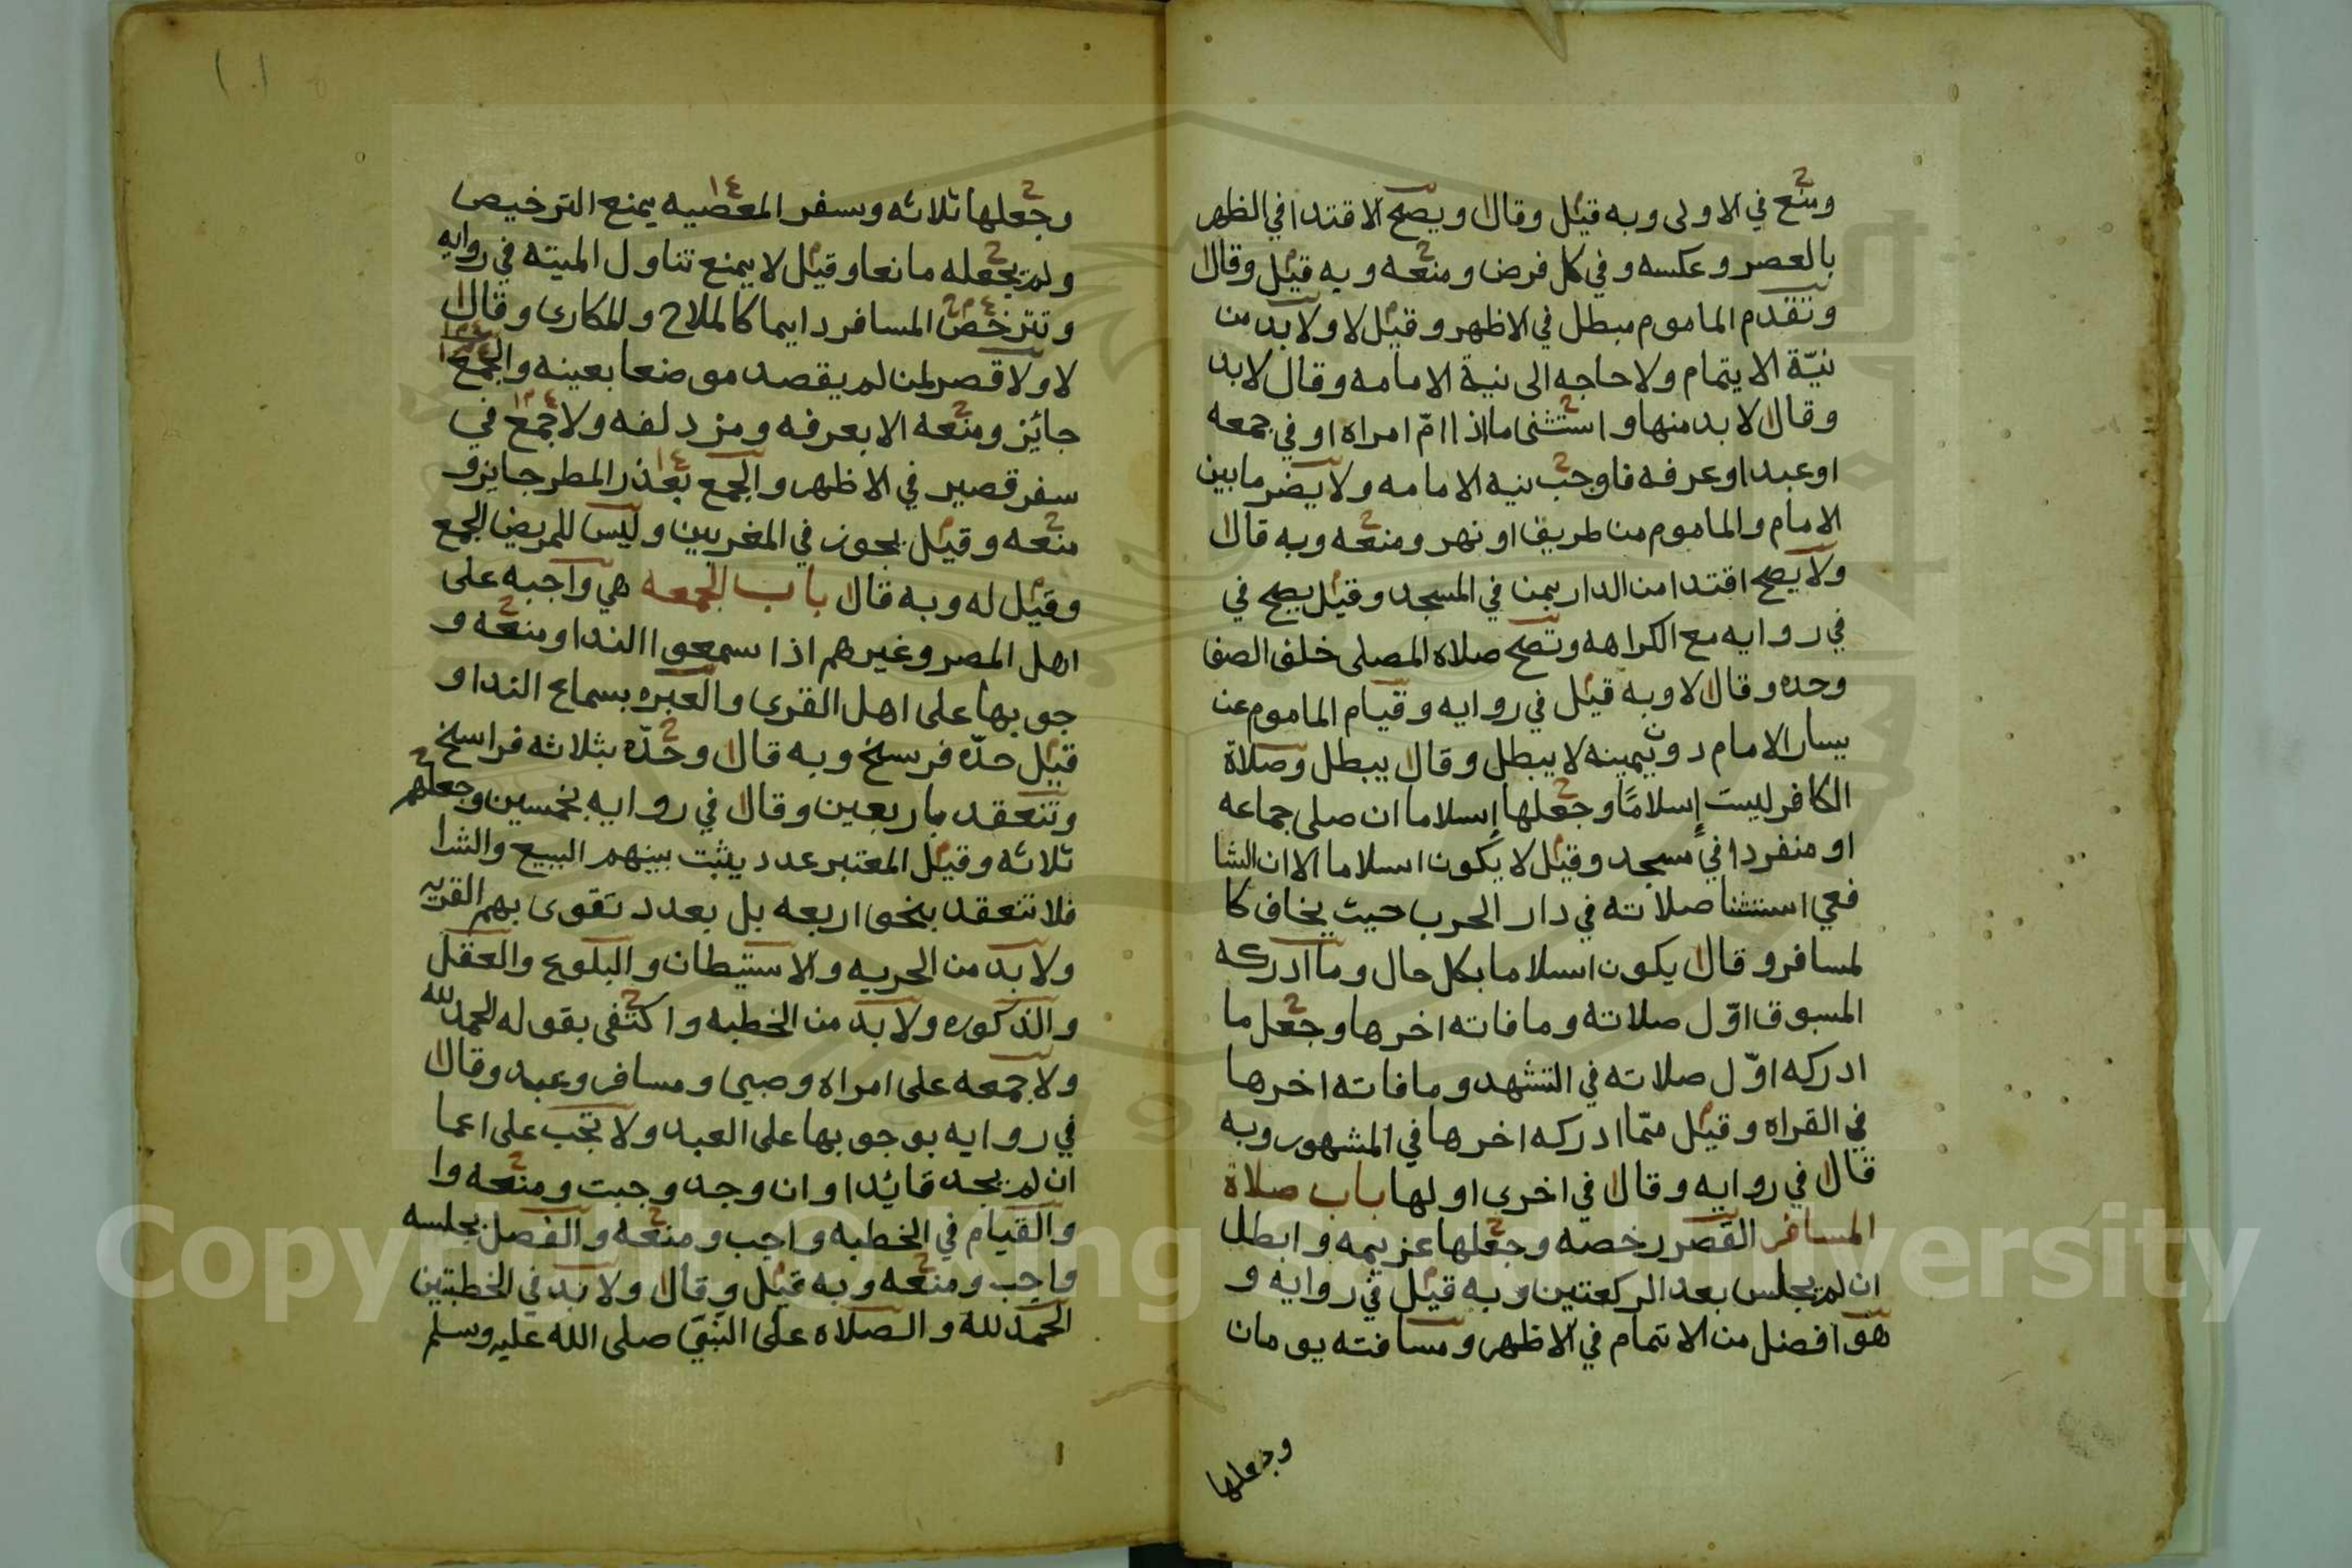 ومنع في الاولى وبه قيل وقال ويصح الاقتدا في الظهر
بالعصر وعكسه وفي كل فرض ومنعه وبه قيل وقال
وتقدم الماموم مبطل في الاظهر وقيل لا ولا بد من
نيّة الايتمام ولا حاجه الى نية الامامه وقال لا بد
وقال لا بد منها واستثنى ما اذا امّ امراه او في جمعه
او عبد او عرفه فاوجب نيه الامامه ولا يضر ما بين
الامام والماموم من طريق او نهر ومنعه وبه قال
ولا يصح اقتدا من الدار بمن في المسجد وقيل يصح في
في روايه مع الكراهه وتصح صلاه المصلى خلف الصف
وحده وقال لا وبه قيل في روايه وقيام الماموم عن
يسار الامام دون يمينه لا يبطل وقال يبطل وصلاة
الكافر ليست إسلامًا وجعلها إسلاما ان صلى جماعه
او منفردا في مسجد وقيل لا يكون اسلاما الا ان الشا
فعي استثنا صلاته في دار الحرب حيث يخاف كا
لمسافر وقال يكون اسلاما بكل حال وما ادركه
المسبوق اوّل صلاته وما فاته اخرها وجعل ما
ادركه اوّل صلاته في التشهد وما فاته اخرها
في القراه وقيل متما ادركه اخرها في المشهور وبه
قال في روايه وقال في اخرى اولها باب صلاة
المسافر القصر رخصه وجعلها عزيمه وابطل
ان لم يجلس بعد الركعتين وبه قيل في روايه و
هو افضل من الاتمام في الاظهر ومسافته يومان
وجعلها
وجعلها ثلاثه وسفر المعصيه يمنع الترخيص
ولم يجعله مانعا وقيل لا يمنع تناول الميته في روايه
وتترخص المسافر دايما كالملاح والمكارى وقال
لا ولا قصر لمن لم يقصد موضعا بعينه والجمع
جائز ومنعه الا بعرفه ومزدلفه ولا جمع في
سفر قصير في الاظهر والجمع بعذر المطر جايز و
منعه وقيل يجوز في المغربين وليس للمريض الجمع
وقيل له وبه قال باب الجمعه هي واجبه على
اهل المصر وغيرهم اذا سمعوا الندا ومنعه و
جوبها على اهل القرى والعبره بسماع الندا و
قيل حدّه فرسخ وبه قال وحدّه بثلاثه فراسخ
وتنعقد باربعين وقال في روايه بخمسين وجعلهم
ثلاثه وقيل المعتبر عدد يثبت بينهم البيع والشرا
فلا تنعقد بنحو اربعه بل بعدد تقوى بهم القريه
ولا بد من الحريه والاستيطان والبلوغ والعقل
والذكوره ولا بد من الخطبه واكتفى بقوله الحمد لله
ولا جمعه على امراه وصبي ومسافر وعبد وقال
في روايه بوجوبها على العبد ولا تجب على اعما
ان لم يجد قائدا وان وجد وجبت ومنعه وا
والقيام في الخطبه واجب ومنعه والفصل بجلسه
واجب ومنعه وبه قيل وقال ولا بد في الخطبتين
الحمد لله والصلاه على النبي صلى الله عليه وسلم
Copyright © King Saud University